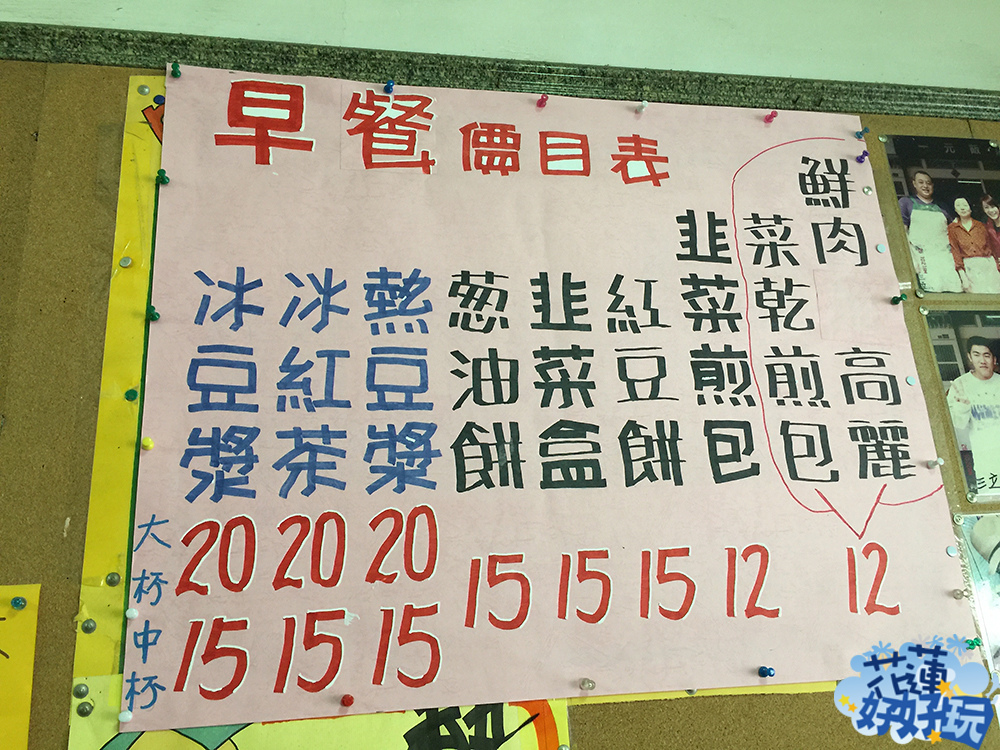 早餐價目表
鮮肉
高麗
菜乾煎包
12
韭菜煎包
12
紅豆餅
15
韭菜盒
15
葱油餅
15
熱豆漿
20
15
冰紅茶
20
15
冰豆漿
20
15
大杯
中杯
花蓮好好玩